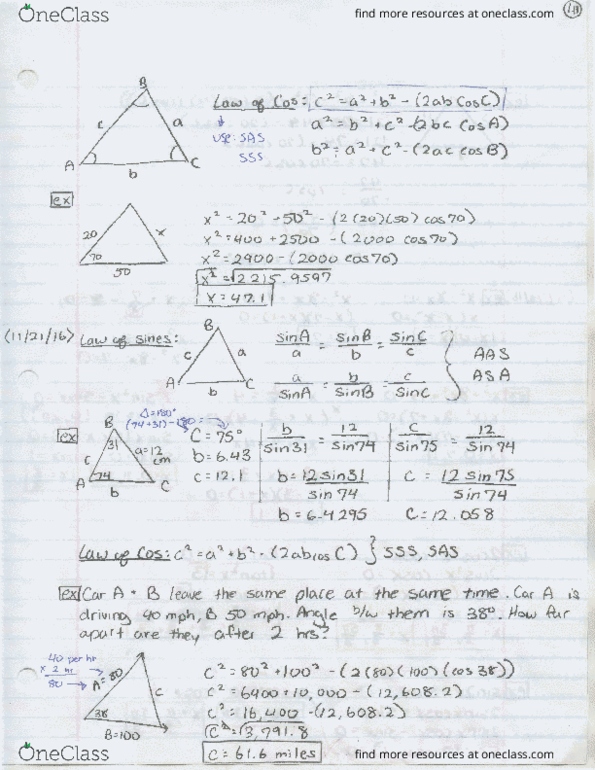 OneClass
find more resources at oneclass.com
B
c
a
A
b
C
Law of Cos: c² = a² + b² - (2ab CosC)
use: SAS
SSS
a² = b² + c² - (2bc cosA)
b² = a² + c² - (2ac cosB)
ex
20
x
70
50
x² = 20² + 50² - (2(20)(50) cos70)
x² = 400 + 2500 - (2000 cos70)
x² = 2900 - (2000 cos70)
√x² = √2215.9597
x = 47.1
(11/21/16)
Law of sines:
B
c
a
A
b
C
sinA/a = sinB/b = sinC/c
a/sinA = b/sinB = c/sinC
AAS
ASA
ex
Δ=180°
(74+31)-180
B
31
c
a=12 cm
A
74
b
C
C = 75°
b = 6.43
c = 12.1
b/sin31 = 12/sin74
b = 12 sin31/sin74
b = 6.4295
c/sin75 = 12/sin74
c = 12 sin75/sin74
C = 12.058
Law of Cos: c² = a² + b² - (2abcos C) } SSS, SAS
ex Car A + B leave the same place at the same time. Car A is
driving 40 mph, B 50 mph. Angle b/w them is 38°. How far
apart are they after 2 hrs?
40 per hr
x 2 hr
80
A=80
c
38
B=100
c² = 80² + 100² - (2(80)(100)(cos38))
c² = 6400 + 10,000 - (12,608.2)
c² = 16,400 - (12,608.2)
√c² = √3,791.8
c = 61.6 miles
OneClass
find more resources at oneclass.com